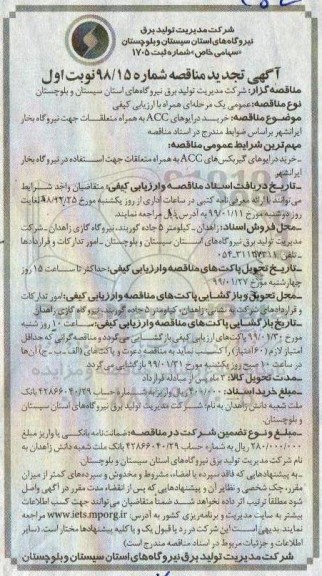 شرکت مدیریت تولید برق
نیروگاه‌های استان سیستان و بلوچستان
«سهامی خاص» شماره ثبت ۱۷۰۵
آگهی تجدید مناقصه شماره ۹۸/۱۵ نوبت اول
مناقصه گزار: شرکت مدیریت تولید برق نیروگاه‌های استان سیستان و بلوچستان
نوع مناقصه: عمومی یک مرحله‌ای همراه با ارزیابی کیفی
موضوع مناقصه: خرید درایوهای ACC به همراه متعلقات جهت نیروگاه بخار
ایرانشهر براساس ضوابط مندرج در اسناد مناقصه
مهم‌ترین شرایط عمومی مناقصه:
-خرید درایوهای گیربکس‌های ACC به همراه متعلقات جهت استفاده در نیروگاه بخار
ایرانشهر
-تاریخ دریافت اسناد مناقصه و ارزیابی کیفی: متقاضیان واجد شرایط
می‌توانند با ارائه معرفی‌نامه کتبی در ساعات اداری از روز یکشنبه مورخ لغایت
روز دوشنبه مورخ ۹۹/۰۱/۱۱ به آدرس ذیل مراجعه نمایند.
-محل فروش اسناد: زاهدان - کیلومتر ۵ جاده گوربند، نیروگاه گازی زاهدان - شرکت
مدیریت تولید برق نیروگاه‌های استان سیستان و بلوچستان - امور تدارکات و قراردادها
تلفن:
-تاریخ تحویل پاکت‌های مناقصه و ارزیابی کیفی: حداکثر تا ساعت ۱۵ روز
چهارشنبه مورخ ۹۹/۰۱/۲۷
-محل تحویل و بازگشایی پاکت‌های مناقصه و ارزیابی کیفی: امور تدارکات
و قراردادهای شرکت به نشانی: زاهدان، کیلومتر ۵ جاده گوربند، نیروگاه گازی زاهدان
-تاریخ بازگشایی پاکت‌های مناقصه و ارزیابی کیفی: ساعت ۱۰ روز شنبه
مورخ ۹۹/۰۱/۳۰ پاکت‌های ارزیابی کیفی بازگشایی می‌گردد و مناقصه گرانی که حداقل
امتیاز لازم (۶۰ امتیاز) را کسب نماید به مناقصه دعوت و پاکت‌های (الف - ب - ج) آن‌ها
در ساعت ۱۰ صبح روز یکشنبه مورخ ۹۹/۰۱/۳۱ بازگشایی می‌گردد.
-مدت تحویل کالا: ماه پس از مبادله قرارداد
-مبلغ خرید اسناد: ریال واریز به شماره حساب ۴۲۸۶۶۰۴۰/۲۹ بانک
ملت شعبه دانش زاهدان به نام: شرکت مدیریت تولید برق نیروگاه‌های استان سیستان
و بلوچستان
-مبلغ و نوع تضمین شرکت در مناقصه: ضمانت‌نامه بانکی یا واریز مبلغ
ریال به شماره حساب ۴۲۸۶۶۰۴۰/۲۹ بانک ملت شعبه دانش زاهدان به
نام شرکت مدیریت تولید برق نیروگاه‌های استان سیستان و بلوچستان
-به پیشنهادهایی که فاقد سپرده یا امضاء، مشروط و مخدوش و سپرده‌های کمتر از میزان
مقرر، چک شخصی و نظایر آن و پیشنهادهایی که پس از انقضاء مدت مقرر در آگهی واصل
شود مطلقاً ترتیب اثر داده نخواهد شد ضمناً متقاضیان می‌توانند جهت کسب اطلاعات
بیشتر به سایت مدیریت و برنامه‌ریزی کشور به آدرس www.iets.mporg.ir مراجعه
نمایند. بدیهی است این شرکت در رد یا قبول یک و یا کلیه پیشنهادها مختار است (سایر
اطلاعات و جزئیات مربوط در اسناد مناقصه مندرج است)
شرکت مدیریت تولید برق نیروگاه‌های استان سیستان و بلوچستان